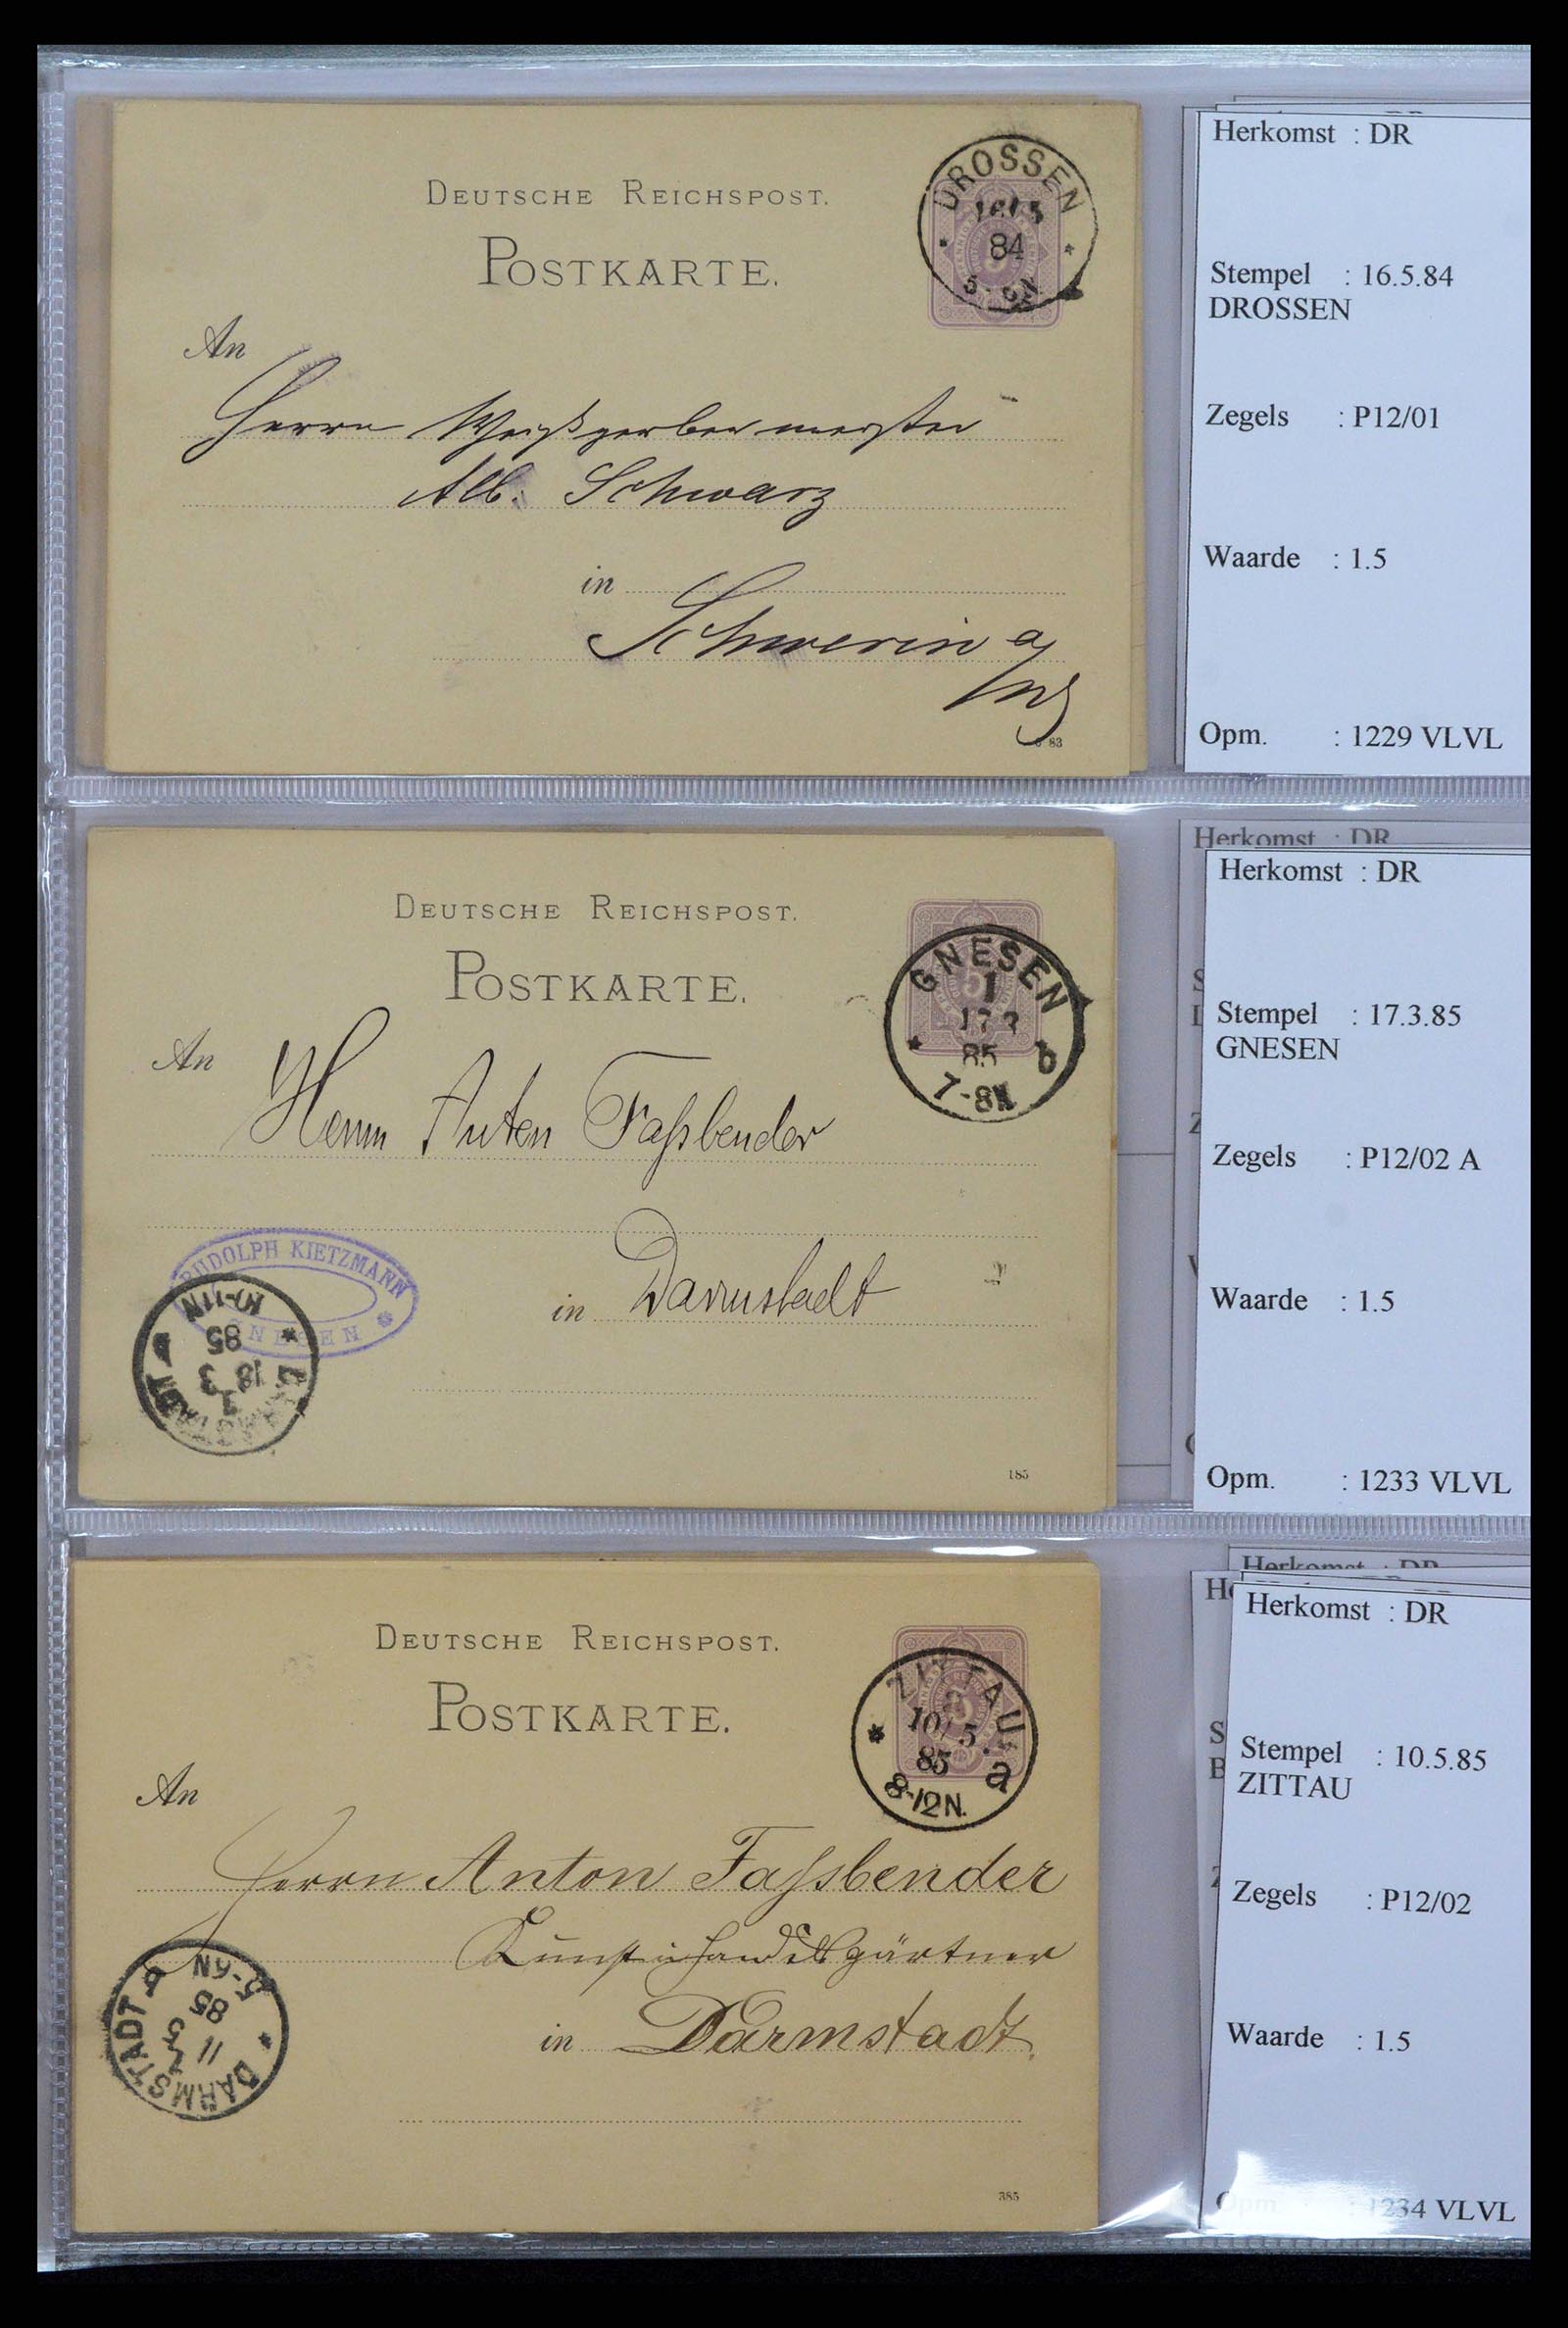 DEUTSCHE REICHSPOST.
POSTKARTE.
DROSSEN
16/5
84
5-6N
An
Herrn Weißgerbermeister
Alb. Schwarz
in
Schwerin a/
W
83
Herkomst : DR
Stempel : 16.5.84
DROSSEN
Zegels : P12/01
Waarde : 1.5
Opm. : 1229 VLVL
DEUTSCHE REICHSPOST.
POSTKARTE.
GNESEN
1
17 3
85
* b
7-8N
An
Herrn Anton Faßbender
RUDOLPH KIETZMANN
GNESEN *
in Darmstadt
DARMSTADT
3
18 3
85
10-11N
185
Herkomst : DR
Herkomst : DR
Stempel : 17.3.85
GNESEN
Zegels : P12/02 A
Waarde : 1.5
Opm. : 1233 VLVL
DEUTSCHE REICHSPOST.
POSTKARTE.
ZITTAU
10/5
85
* a
8-12N.
An
Herrn Anton Fassbender
Kunst u Handelsgärtner
in Darmstadt.
* DARMSTADT
11
5
85
5-6N
385
Herkomst : DR
Herkomst : DR
Stempel : 10.5.85
ZITTAU
Zegels : P12/02
Waarde : 1.5
Opm. : 1234 VLVL